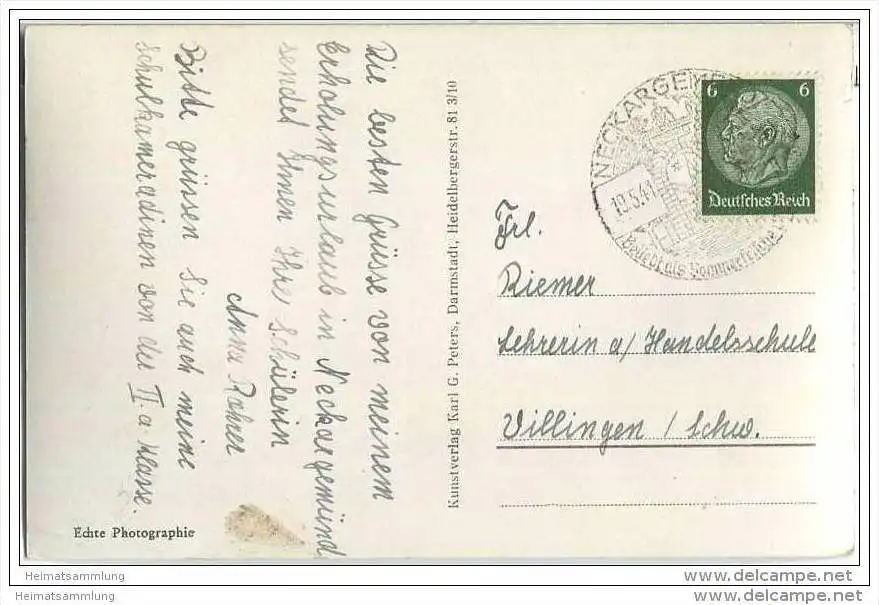 Die besten Grüsse von meinem
Erholungsurlaub in Neckargemünd
sendet Ihnen Ihre Schülerin
Anna Rohrer
Bitte grüssen Sie auch meine
Schulkameradinen von der II a Klasse.
Echte Photographie
Kunstverlag Karl G. Peters, Darmstadt, Heidelbergerstr. 81 3/10
NECKARGEMÜND
19.5.41
Beliebt als Sommerfrische
6 6
Deutsches Reich
Frl.
Riemer
Lehrerin a/ Handelsschule
Villingen / Schw.
Heimatsammlung
Heimatsammlung
www.delcampe.net
www.delcampe.net